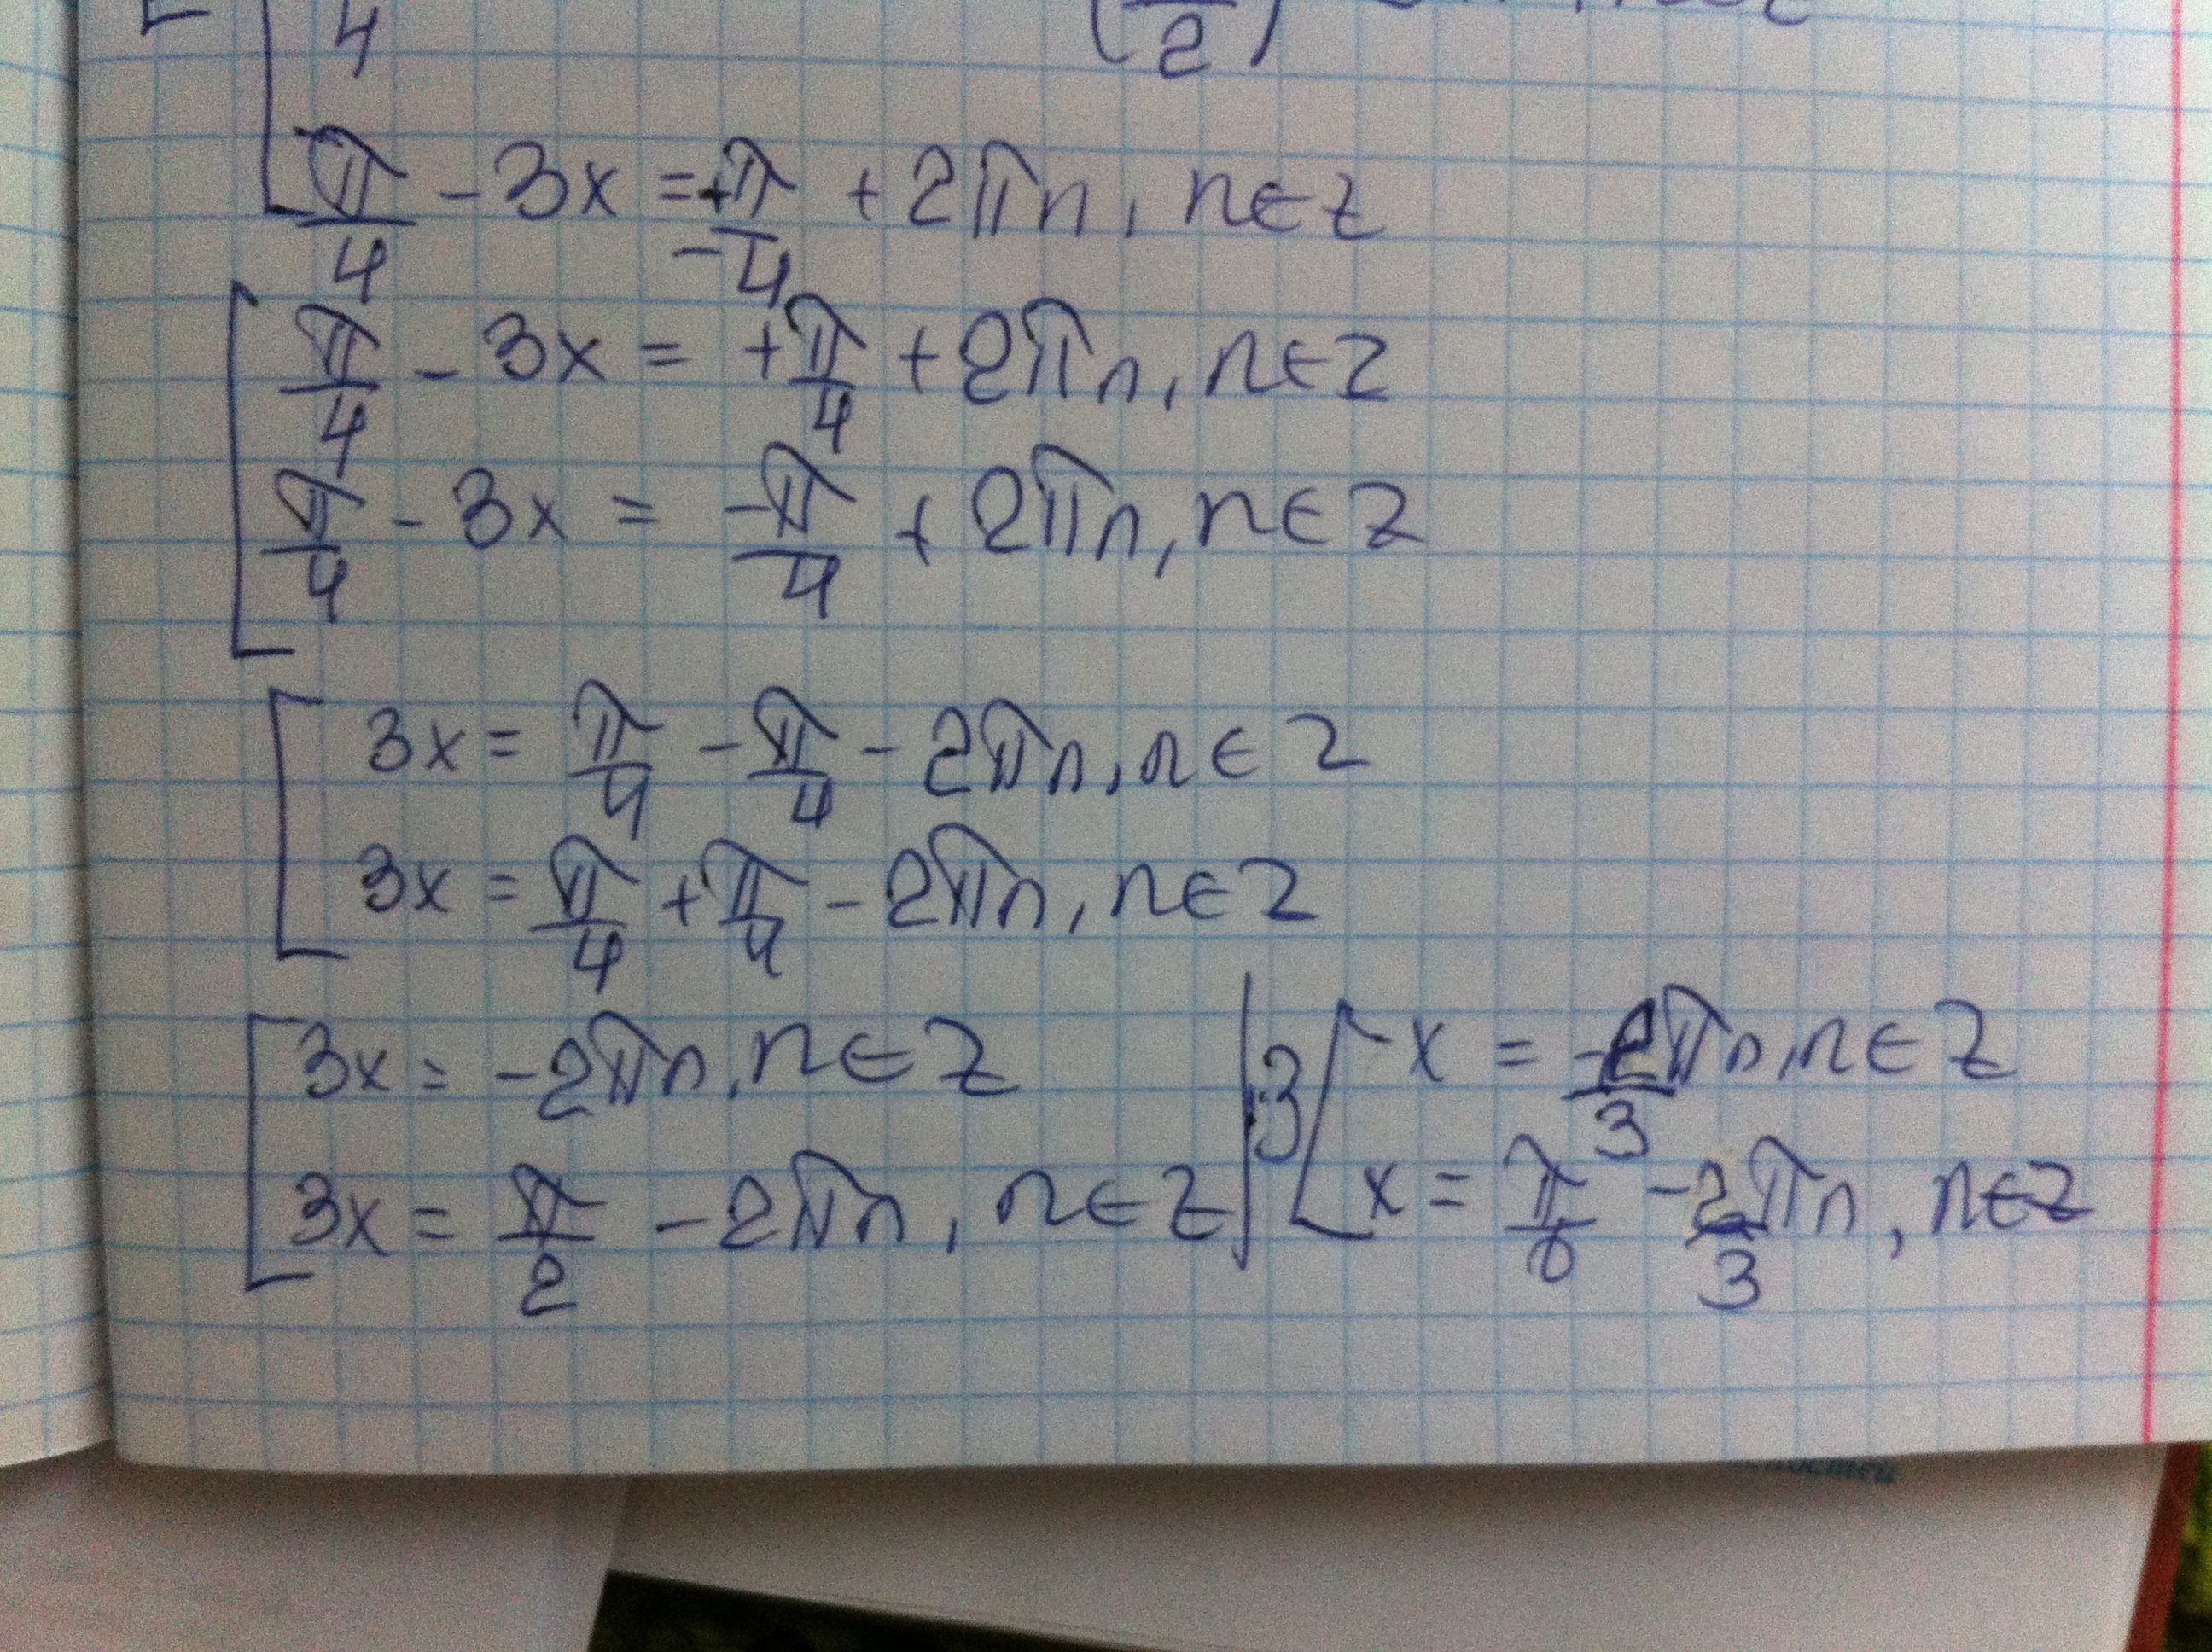 4 (/2)
π/4 - 3x = ±π/4 + 2πn, n∈Z
π/4 - 3x = +π/4 + 2πn, n∈Z
π/4 - 3x = -π/4 + 2πn, n∈Z
3x = π/4 - π/4 - 2πn, n∈Z
3x = π/4 + π/4 - 2πn, n∈Z
3x = -2πn, n∈Z |:3 [x = -2/3 πn, n∈Z
3x = π/2 - 2πn, n∈Z | x = π/6 - 2/3 πn, n∈Z